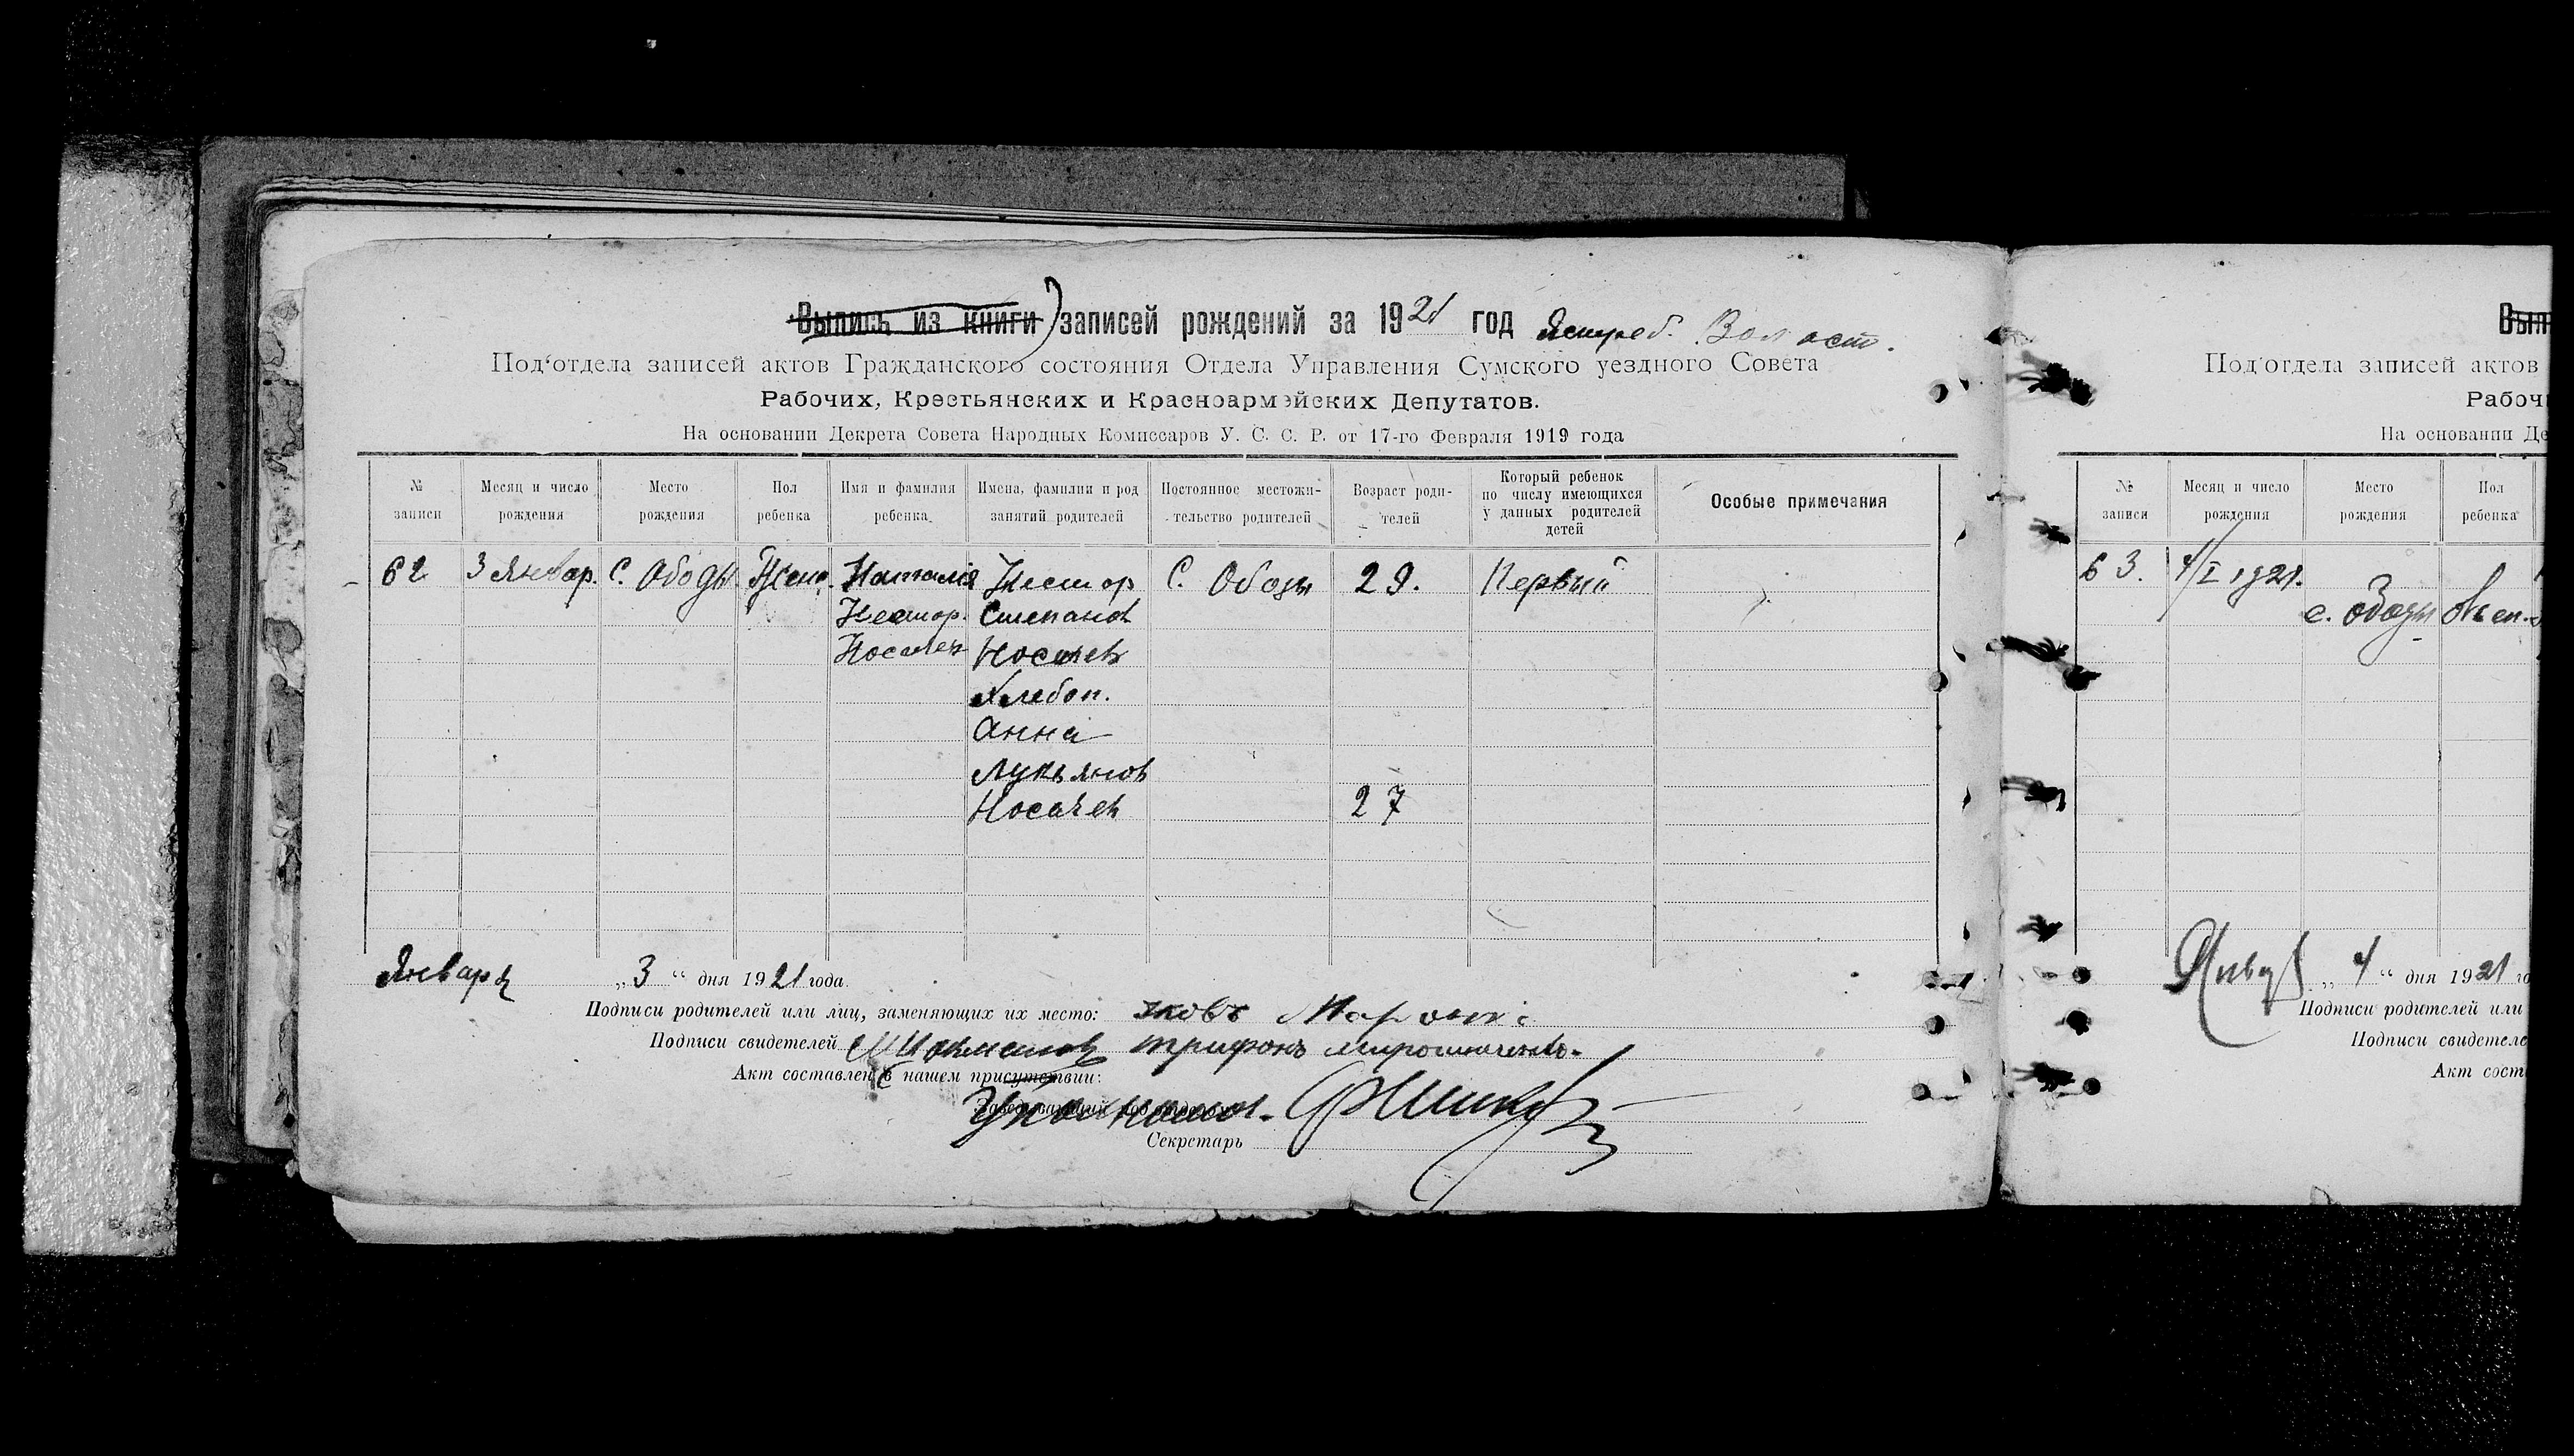 Выпись из книги записей рождений за 1921 год Ястреб. Волост.
Под'отдела записей актов Гражданского состояния Отдела Управления Сумского уездного Совета
Рабочих, Крестьянских и Красноармейских Депутатов.
На основании Декрета Совета Народных Комиссаров У. С. С. Р. от 17-го Февраля 1919 года
№ записи
Месяц и число рождения
Место рождения
Пол ребенка
Имя и фамилия ребенка
Имена, фамилии и род занятий родителей
Постоянное местожительство родителей
Возраст родителей
Который ребенок по числу имеющихся у данных родителей детей
Особые примечания
62 3 Январ. С. Ободы Жен. Наталия Нестор С. Ободы 29. Первый
Нестор. Степанов
Носачев Носачев
Хлебоп.
Анна
Лукьянов
Носачев 27
Января „3“ дня 1921 года
Подписи родителей или лиц, заменяющих их место:
Подписи свидетелей трифонъ мирошниченко.
Акт составлен в нашем присутствии:
Секретарь
Вып
Под'отдела записей актов
Рабочи
На основании Де
№ записи
Месяц и число рождения
Место рождения
Пол ребенка
63. 4/I 1921.
с. Ободы
„4“ дня 1921 го
Подписи родителей или
Подписи свидетеле
Акт сост